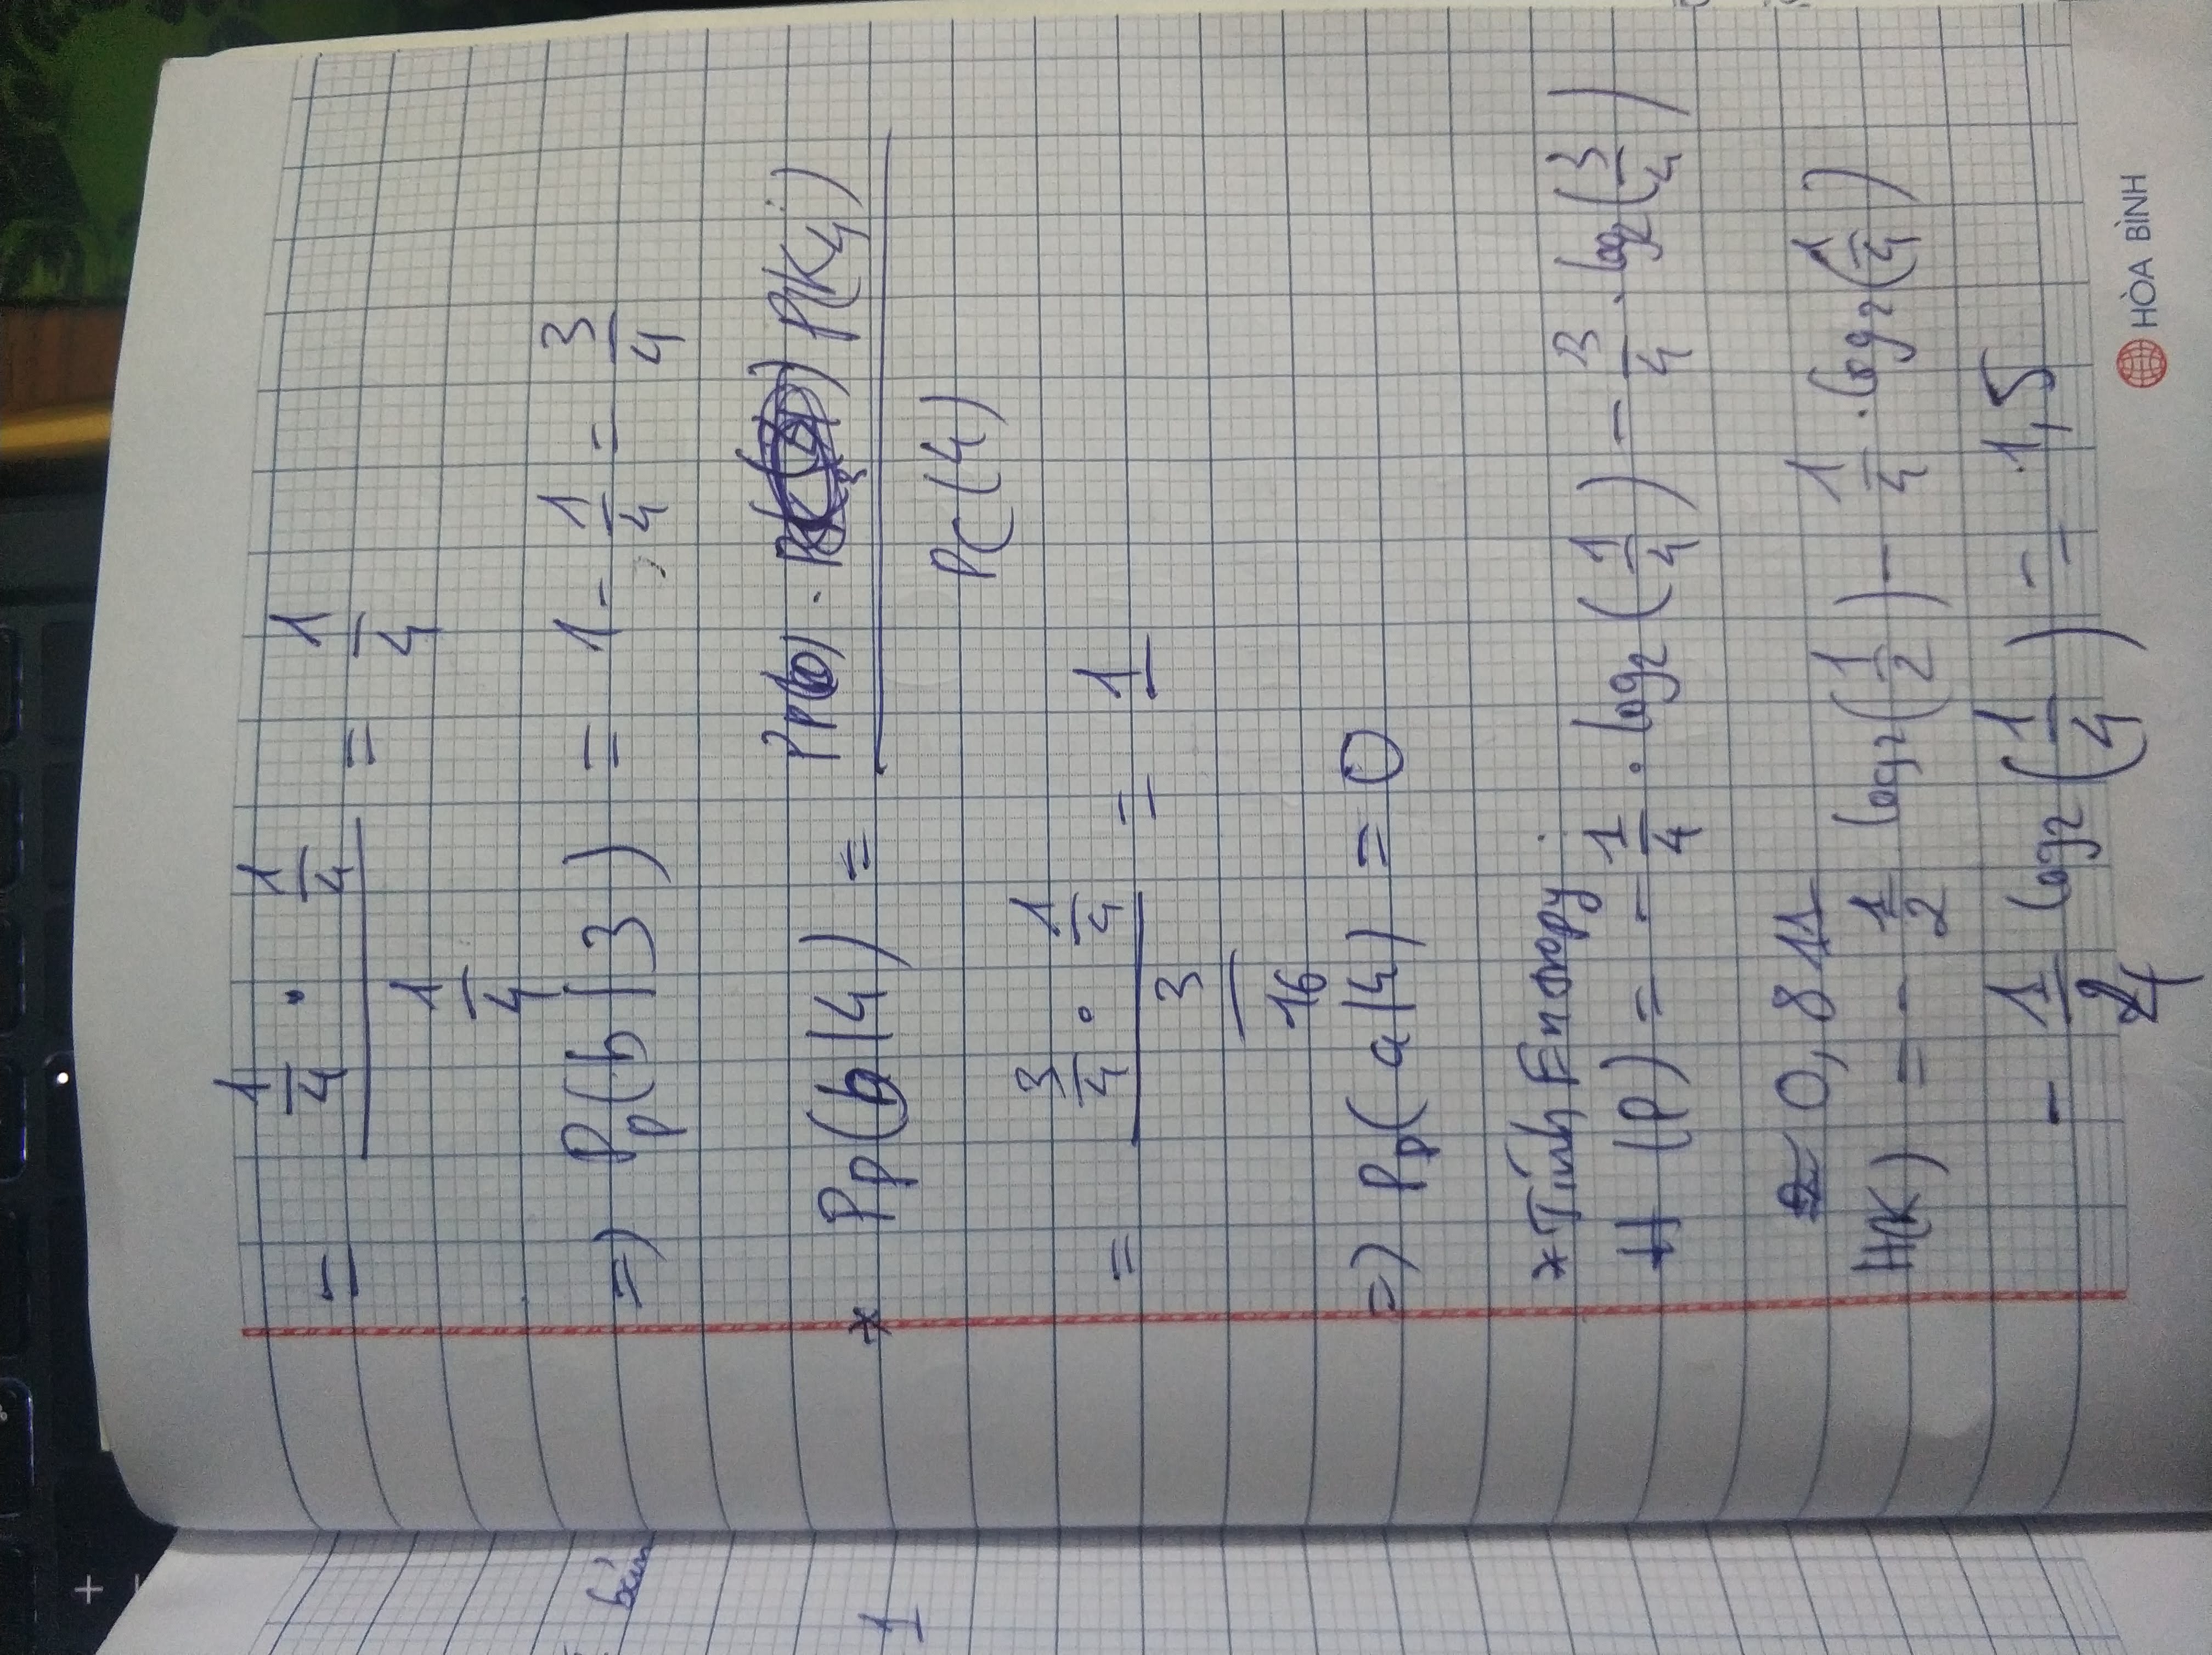 = (1/4 . 1/4) / (1/4) = 1/4
=> Pp(b|3) = 1 - 1/4 = 3/4
bản
* Pp(b|4) = Pp(b) . P(K4) / PC(4)
1
= (3/4 . 1/4) / (3/16) = 1
=> Pp(a|4) = 0
* Tính Entropy :
H (P) = - 1/4 . log2(1/4) - 3/4 . log2(3/4)
≈ 0,811
H(K) = - 1/2 log2(1/2) - 1/4 . log2(1/4)
- 1/4 log2(1/4) = 1,5
HÒA BÌNH